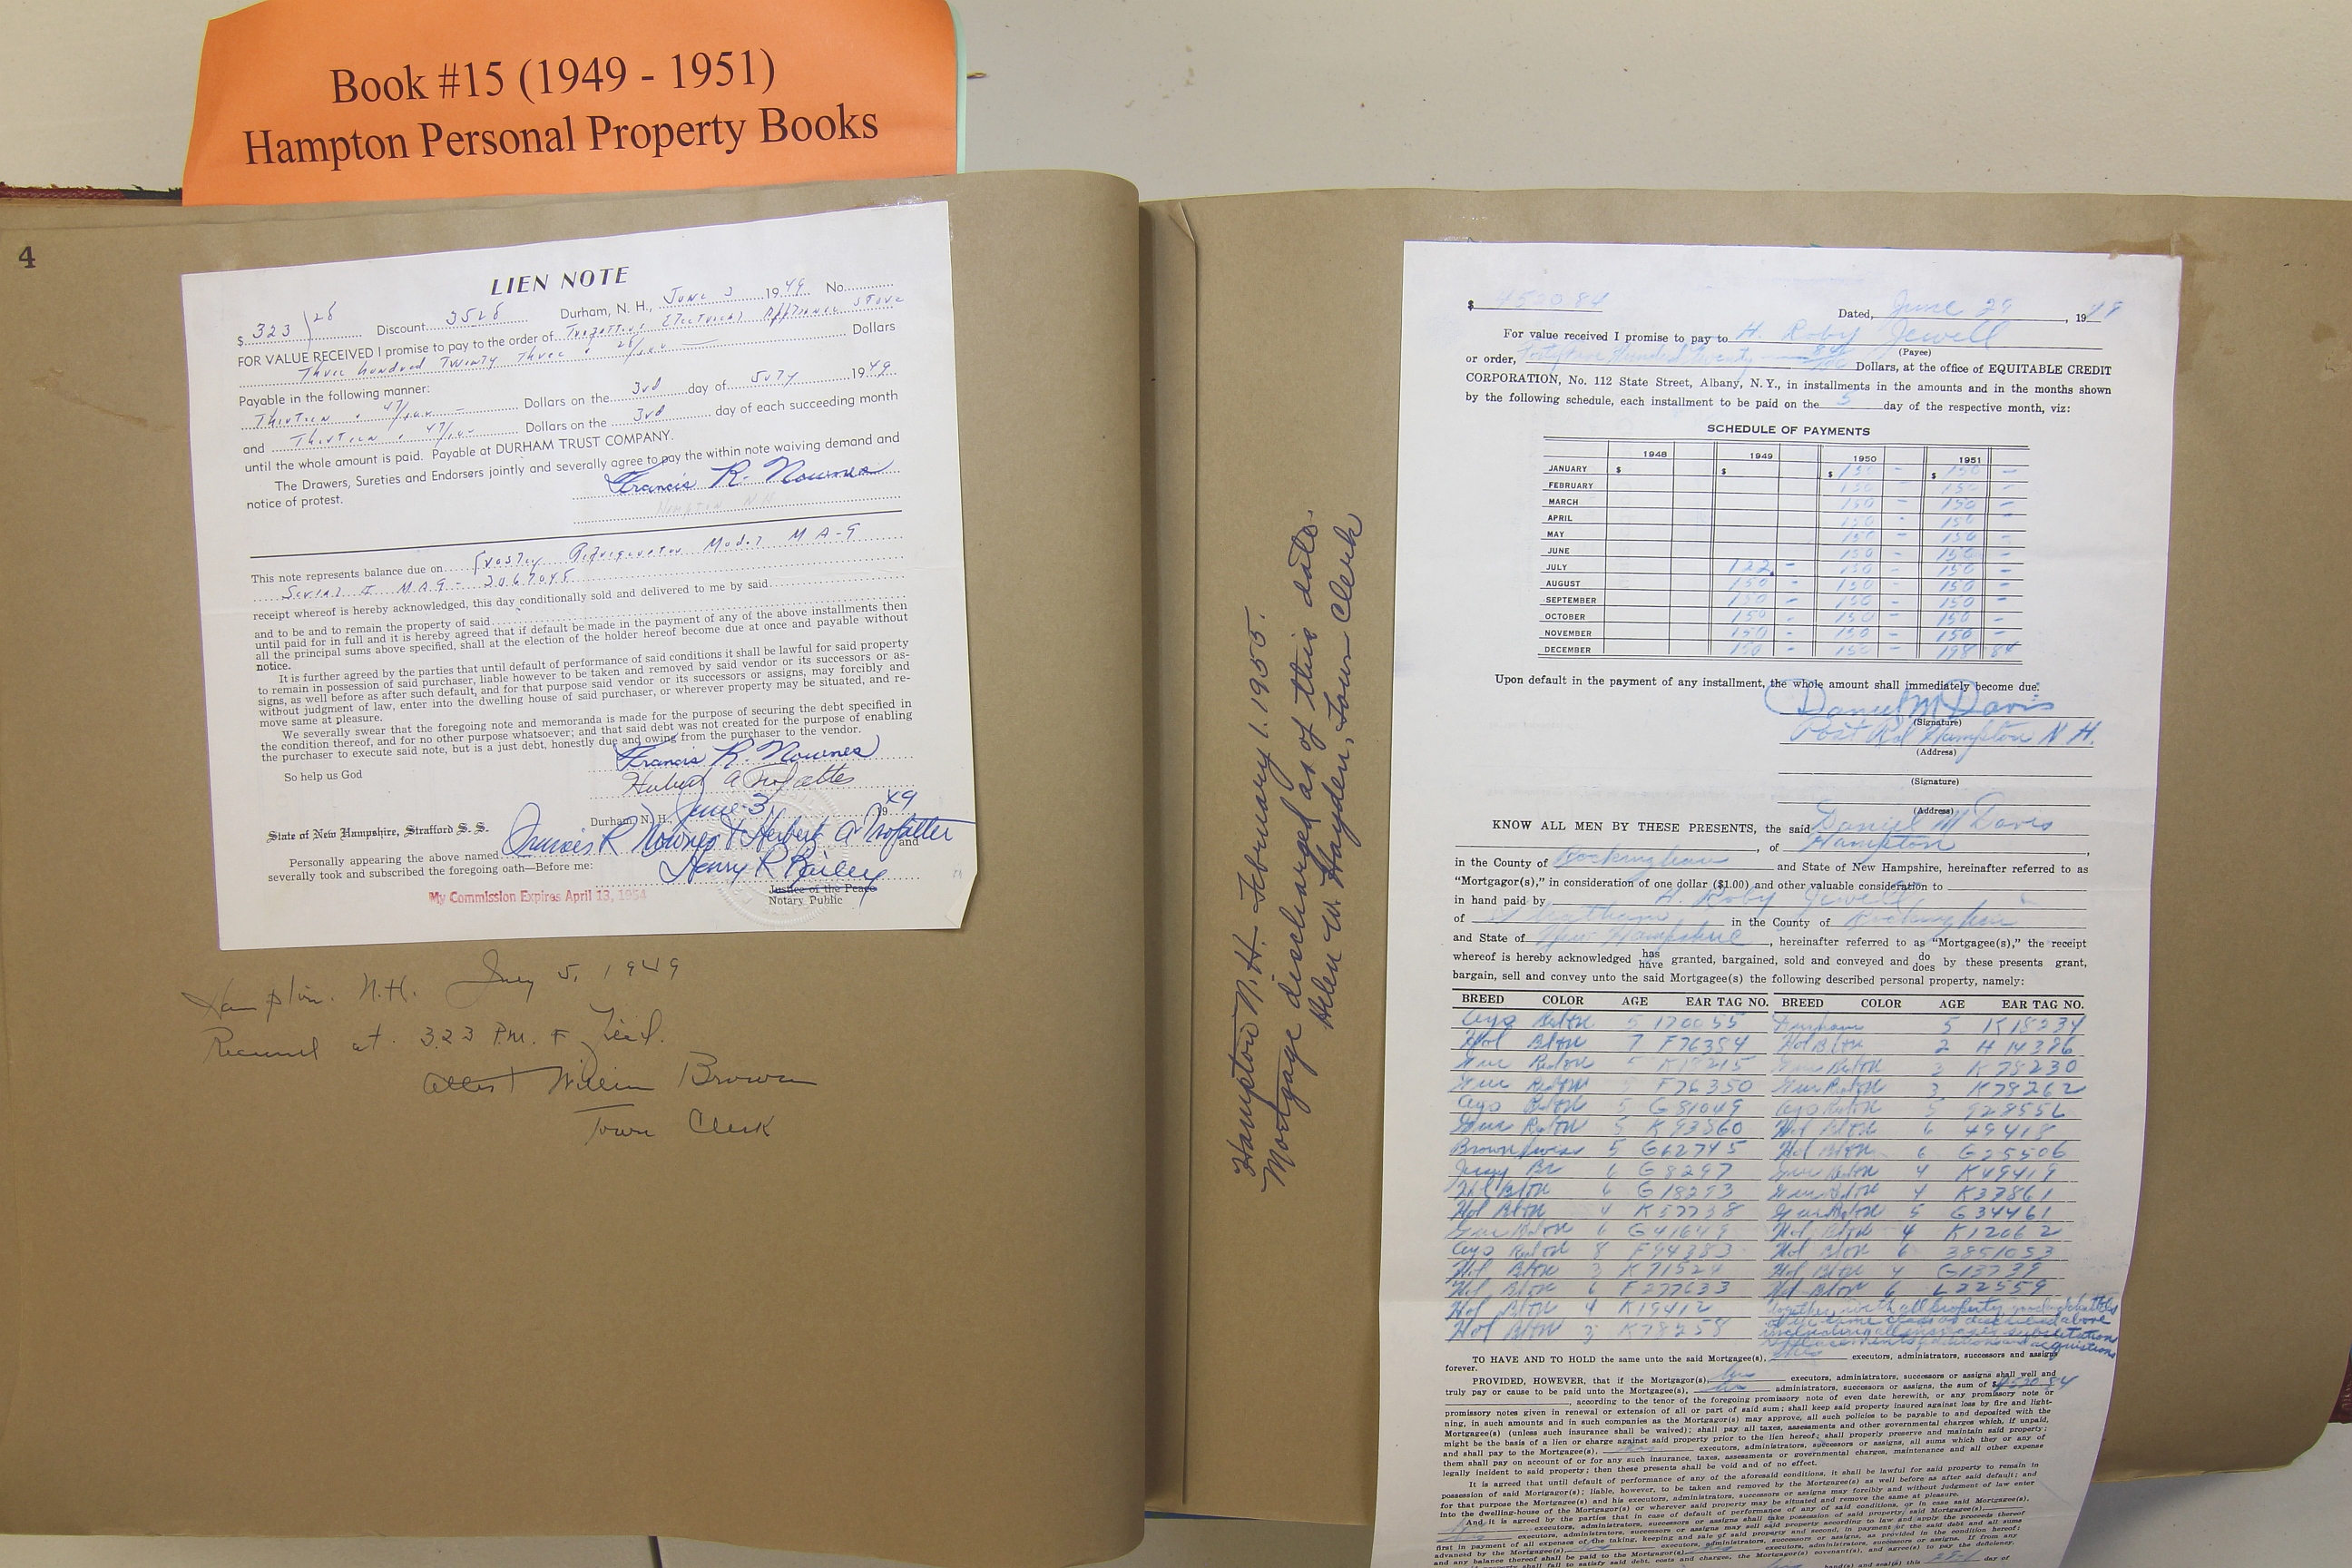 Book #15 (1949 - 1951)
Hampton Personal Property Books
4
LIEN NOTE
$ 323 28 Discount 3528 Durham, N. H., June 3 1949 No.
FOR VALUE RECEIVED I promise to pay to the order of Electrical Appliance Store
Three hundred Twenty Three & 28/100 Dollars
Payable in the following manner:
Thirteen & 47/100 Dollars on the 3rd day of July 1949
and Thirteen & 47/100 Dollars on the 3rd day of each succeeding month
until the whole amount is paid. Payable at DURHAM TRUST COMPANY.
The Drawers, Sureties and Endorsers jointly and severally agree to pay the within note waiving demand and
notice of protest.
Francis R. Nownes
Hampton N.H.
This note represents balance due on Refrigerator Model MA-9
Serial # MA9- 2067045
receipt whereof is hereby acknowledged, this day conditionally sold and delivered to me by said
and to be and to remain the property of said
until paid for in full and it is hereby agreed that if default be made in the payment of any of the above installments then
all the principal sums above specified, shall at the election of the holder hereof become due at once and payable without
notice.
It is further agreed by the parties that until default of performance of said conditions it shall be lawful for said property
to remain in possession of said purchaser, liable however to be taken and removed by said vendor or its successors or as-
signs, as well before as after such default, and for that purpose said vendor or its successors or assigns, may forcibly and
without judgment of law, enter into the dwelling house of said purchaser, or wherever property may be situated, and re-
move same at pleasure.
We severally swear that the foregoing note and memoranda is made for the purpose of securing the debt specified in
the condition thereof, and for no other purpose whatsoever; and that said debt was not created for the purpose of enabling
the purchaser to execute said note, but is a just debt, honestly due and owing from the purchaser to the vendor.
So help us God
Francis R. Nownes
Herbert A
Durham, N. H., June 3, 1949
State of New Hampshire, Strafford S. S.
Personally appearing the above named Francis R Nownes & Herbert A and
severally took and subscribed the foregoing oath—Before me:
Henry R Bailey
Justice of the Peace
Notary Public
My Commission Expires April 13, 1954
Hampton. N.H. July 5, 1949
Received at 323 P.M. &
Attest William Brown
Town Clerk
Hampton N.H.- February 1. 1955.
Mortgage discharged as of this date.
Helen W. Hayden, Town Clerk
$ 4520 84
Dated, June 29, 1949
For value received I promise to pay to H. Roby Jewell
(Payee)
or order, Forty five Hundred Twenty 84/100 Dollars, at the office of EQUITABLE CREDIT
CORPORATION, No. 112 State Street, Albany, N. Y., in installments in the amounts and in the months shown
by the following schedule, each installment to be paid on the 5 day of the respective month, viz:
SCHEDULE OF PAYMENTS
1948 1949 1950 1951
JANUARY $ $ $ 150 - $ 150 -
FEBRUARY 150 - 150 -
MARCH 150 - 150 -
APRIL 150 - 150 -
MAY 150 - 150 -
JUNE 150 - 150 -
JULY 122 - 150 - 150 -
AUGUST 150 - 150 - 150 -
SEPTEMBER 150 - 150 - 150 -
OCTOBER 150 - 150 - 150 -
NOVEMBER 150 - 150 - 150 -
DECEMBER 150 - 150 - 198 84
Upon default in the payment of any installment, the whole amount shall immediately become due.
Daniel M Davis
(Signature)
Post Rd Hampton N H.
(Address)
(Signature)
(Address)
KNOW ALL MEN BY THESE PRESENTS, the said Daniel M Davis
, of Hampton,
in the County of Rockingham and State of New Hampshire, hereinafter referred to as
"Mortgagor(s)," in consideration of one dollar ($1.00) and other valuable consideration to
in hand paid by H. Roby Jewell
of Stratham, in the County of Rockingham
and State of New Hampshire, hereinafter referred to as "Mortgagee(s)," the receipt
whereof is hereby acknowledged has have granted, bargained, sold and conveyed and do does by these presents grant,
bargain, sell and convey unto the said Mortgagee(s) the following described personal property, namely:
BREED COLOR AGE EAR TAG NO. BREED COLOR AGE EAR TAG NO.
5 170055 Durham 5 K18234
Hol 7 F76384 Hol 2 H 14386
K 78230
F76350 3 K78262
5 G 81049
5 K 93560 Hol 6 49418
Brown Swiss 5 G62745 Hol 6 G25506
Jersey Br 6 G 8297 4 K49419
Hol 6 G 18293 4 K37861
Hol 4 K57738 5 G 34461
6 G41649 Hol 4 K12062
8 F94383 Hol 6 3851053
Hol 3 K71524 Hol 4 G13739
Hol 6 F277633 Hol 6 L22559
Hol 4 K19412 together with all property,
Hol 3 K78258
TO HAVE AND TO HOLD the same unto the said Mortgagee(s), his executors, administrators, successors and assigns
forever.
PROVIDED, HOWEVER, that if the Mortgagor(s), his executors, administrators, successors or assigns shall well and
truly pay or cause to be paid unto the Mortgagee(s), his administrators, successors or assigns, the sum of $4520.84
, according to the tenor of the foregoing promissory note of even date herewith, or any promissory note or
promissory notes given in renewal or extension of all or part of said sum; shall keep said property insured against loss by fire and light-
ning, in such amounts and in such companies as the Mortgagor(s) may approve, all such policies to be payable to and deposited with the
Mortgagee(s) (unless such insurance shall be waived); shall pay all taxes, assessments and other governmental charges which, if unpaid,
might be the basis of a lien or charge against said property prior to the lien hereof; shall properly preserve and maintain said property;
and shall pay to the Mortgagee(s), his executors, administrators, successors or assigns, all sums which they or any of
them shall pay on account of or for any such insurance, taxes, assessments or governmental charges, maintenance and all other expense
legally incident to said property; then these presents shall be void and of no effect.
It is agreed that until default of performance of any of the aforesaid conditions, it shall be lawful for said property to remain in
possession of said Mortgagor(s); liable, however, to be taken and removed by the Mortgagee(s) as well before as after said default; and
for that purpose the Mortgagee(s) and his executors, administrators, successors or assigns may forcibly and without judgment of law enter
into the dwelling-house of said Mortgagor(s) or wherever said property may be situated and remove the same at pleasure.